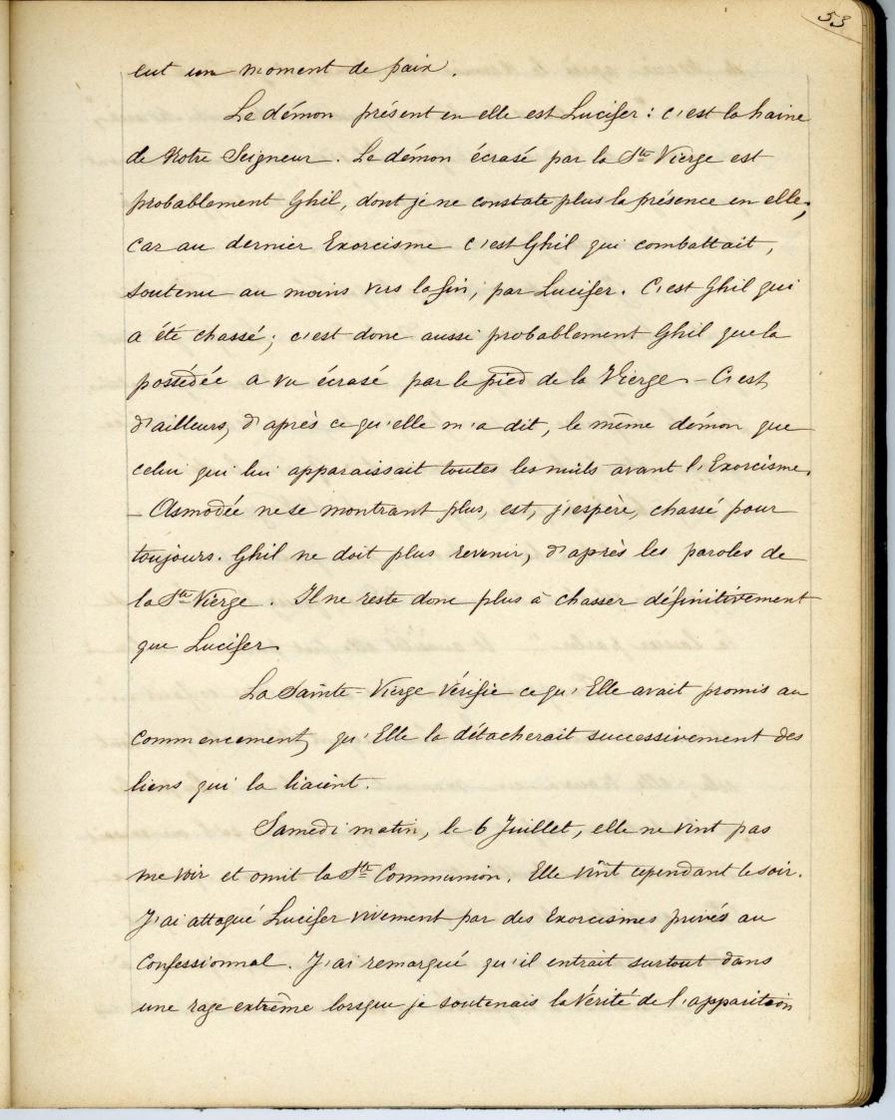 53
eut un moment de paix.
Le démon présent en elle est Lucifer : c'est la haine
de Notre Seigneur. Le démon écrasé par la Ste Vierge est
probablement Ghil, dont je ne constate plus la présence en elle,
car au dernier Exorcisme c'est Ghil qui combattait,
soutenu au moins vers la fin, par Lucifer. C'est Ghil qui
a été chassé; c'est donc aussi probablement Ghil que la
possédée a vu écrasé par le pied de la Vierge - C'est
d'ailleurs, d'après ce qu'elle m'a dit, le même démon que
celui qui lui apparaissait toutes les nuits avant l'Exorcisme.
- Asmodée ne se montrant plus, est, j'espère, chassé pour
toujours. Ghil ne doit plus revenir, d'après les paroles de
la Ste Vierge. Il ne reste donc plus à chasser définitivement
que Lucifer
La Sainte-Vierge vérifie ce qu'Elle avait promis au
commencement, qu'Elle la détacherait successivement des
liens qui la liaient.
Samedi matin, le 6 Juillet, elle ne vint pas
me voir et omit la Ste Communion. Elle vînt cependant le soir.
J'ai attaqué Lucifer vivement par des Exorcismes privés au
Confessionnal. J'ai remarqué qu'il entrait surtout dans
une rage extrême lorsque je soutenais la Vérité de l'apparition